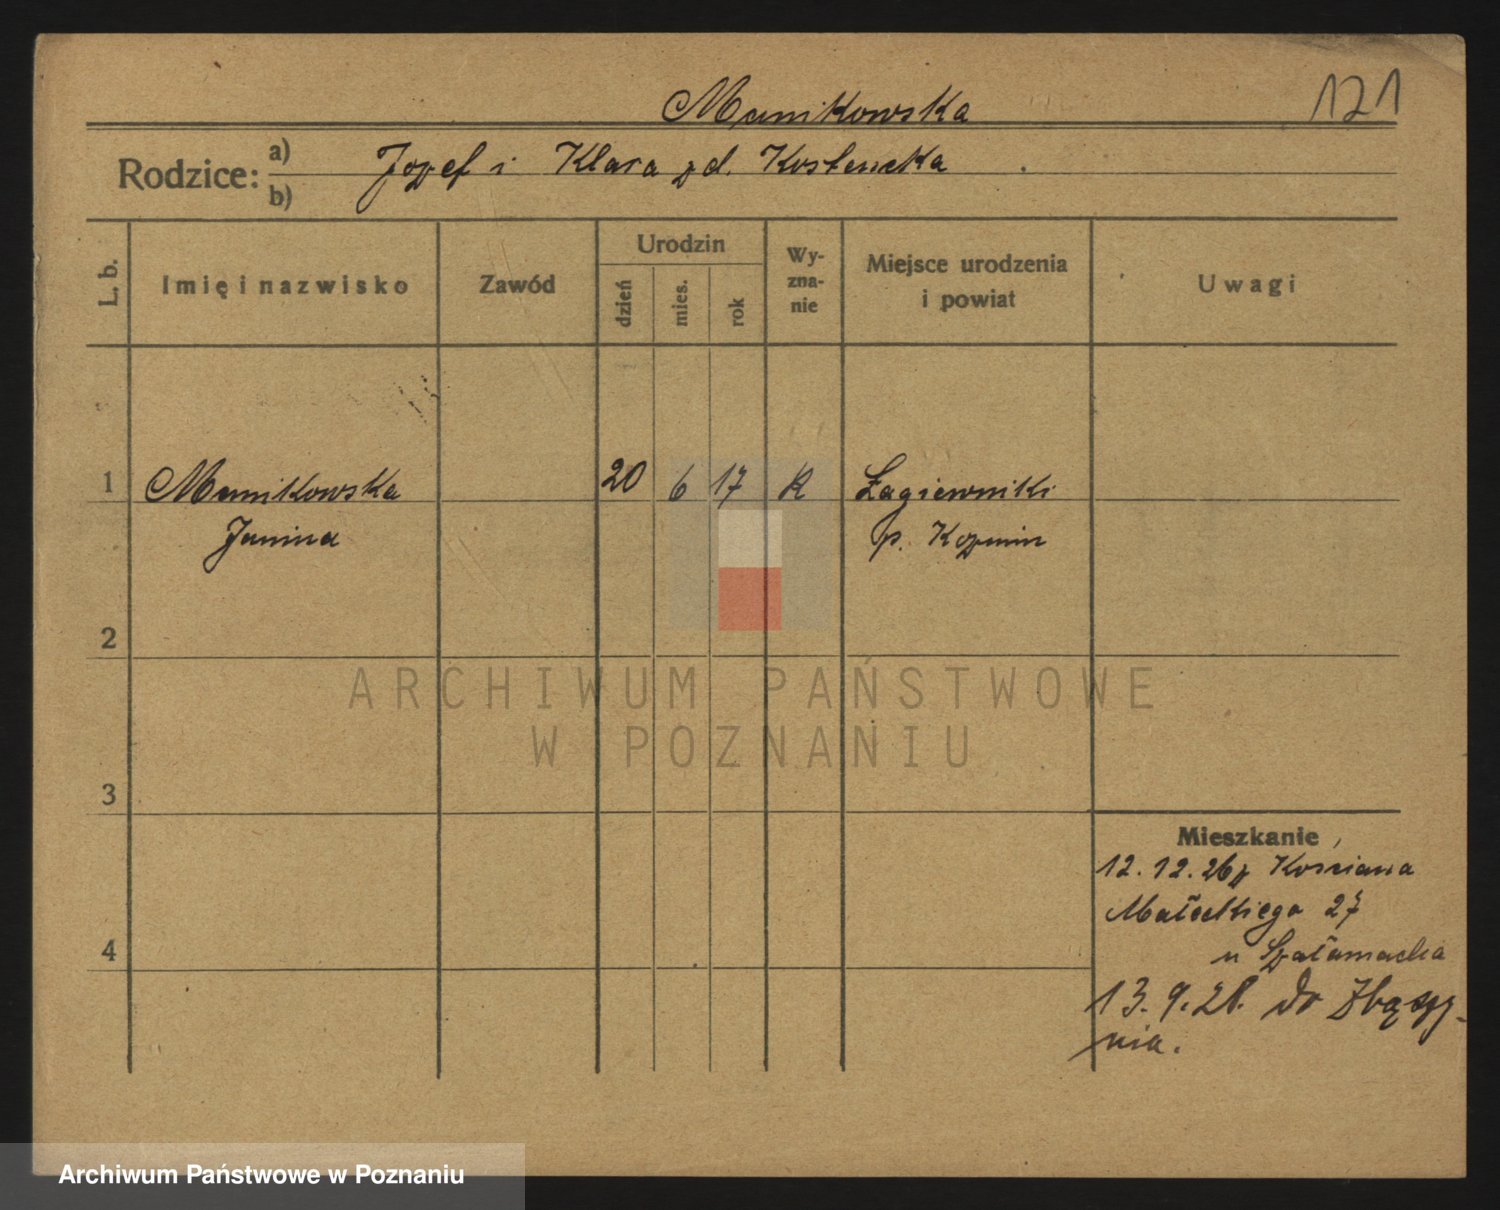 Manikowska
121
Rodzice: a) Józef i Klara zd. Kostencka
b)
L. b.
Imię i nazwisko
Zawód
Urodzin
dzień
mies.
rok
Wy-
zna-
nie
Miejsce urodzenia
i powiat
Uwagi
1 Manikowska 20 6 17 K Łagiewniki
Janina p. Kozmin
2
ARCHIWUM PAŃSTWOWE
W POZNANIU
3
Mieszkanie
12. 12. 26 z Kościana
Małeckiego 27
u
4
13. 9. 28. do Zbąszy-
nia.
Archiwum Państwowe w Poznaniu